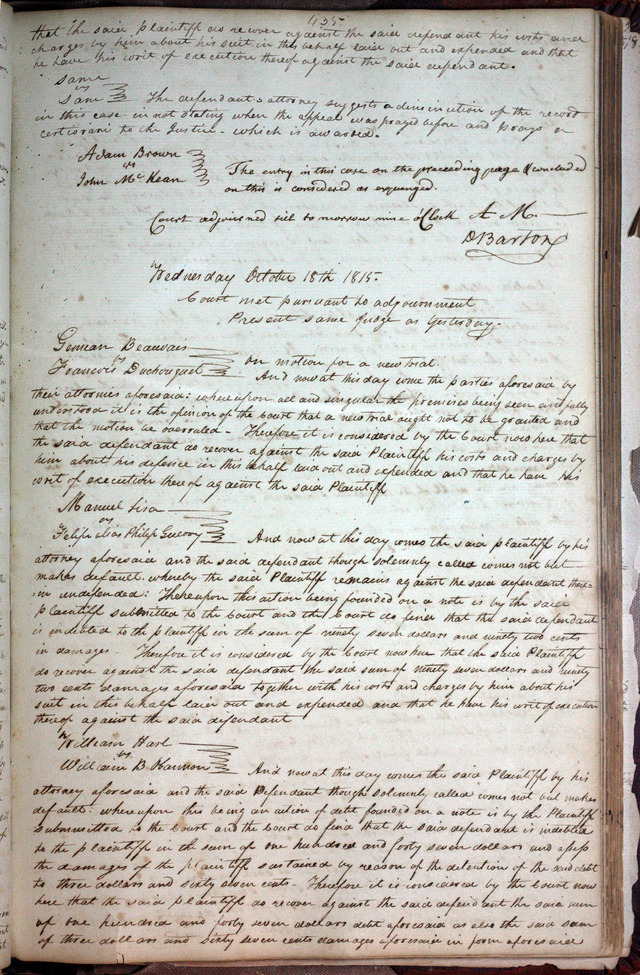 435
that the said Plaintiff do recover against the said defendant his costs and
charges by him about his suit in this behalf laid out and expended and that
he have his writ of execution thereof against the said defendant.
Same
vs
Same The defendants attorney suggests a diminution of the record
in this case in not stating when the appeal was prayed before and prays a
certiorari to the Justice - which is awarded.
Adam Brown
vs
John McKean The entry in this case on the preceeding page & concluded
on this is considered as expunged.
Court adjourned till to morrow nine o'Clock A M.
D Barton
Wednesday October 18th 1815.
Court met pursuant to adjournment
Present same Judge as Yesterday.
Beauvais
vs
Francois Duchouquet on motion for a new trial
And now at this day come the parties aforesaid by
their attornies aforesaid: whereupon all and singular the premises being seen and fully
understood it is the opinion of the Court that a new trial ought not to be granted and
that the motion be overruled - Therefore it is considered by the Court now here that
the said defendant do recover against the said Plaintiff his costs and charges by
him about his defence in this behalf laid out and expended and that he have his
writ of execution thereof against the said Plaintiff
Manuel Lisa
vs
Felipe alias Philip And now at this day comes the said plaintiff by his
attorney aforesaid and the said defendant though solemnly called comes not but
makes default. whereby the said Plaintiff remains against the said defendant there-
in undefended: Thereupon this action being founded on a note is by the said
plaintiff submitted to the Court and the Court do find that the said defendant
is indebted to the plaintiff in the sum of ninety seven dollars and ninety two cents
in damages. Therefore it is considered by the Court now here that the said Plaintiff
do recover against the said defendant the said sum of Ninety seven dollars and ninety
two cents damages aforesaid together with his costs and charges by him about his
suit in this behalf laid out and expended and that he have his writ of execution
thereof against the said defendant
William Hart
vs
William B And now at this day comes the said Plaintiff by his
attorney aforesaid and the said Defendant though solemnly called comes not but makes
default: whereupon this being an action of debt founded on a note is by the Plaintiff
submitted to the Court and the Court do find that the said defendant is indebted
to the plaintiff in the sum of one hundred and forty seven dollars and assess
the damages of the plaintiff sustained by reason of the detention of the said debt
to three dollars and sixty seven cents. Therefore it is considered by the Court now
here that the said plaintiff do recover against the said defendant the said sum
of one hundred and forty seven dollars debt aforesaid as also the said sum
of three dollars and sixty seven cents damages aforesaid in form aforesaid